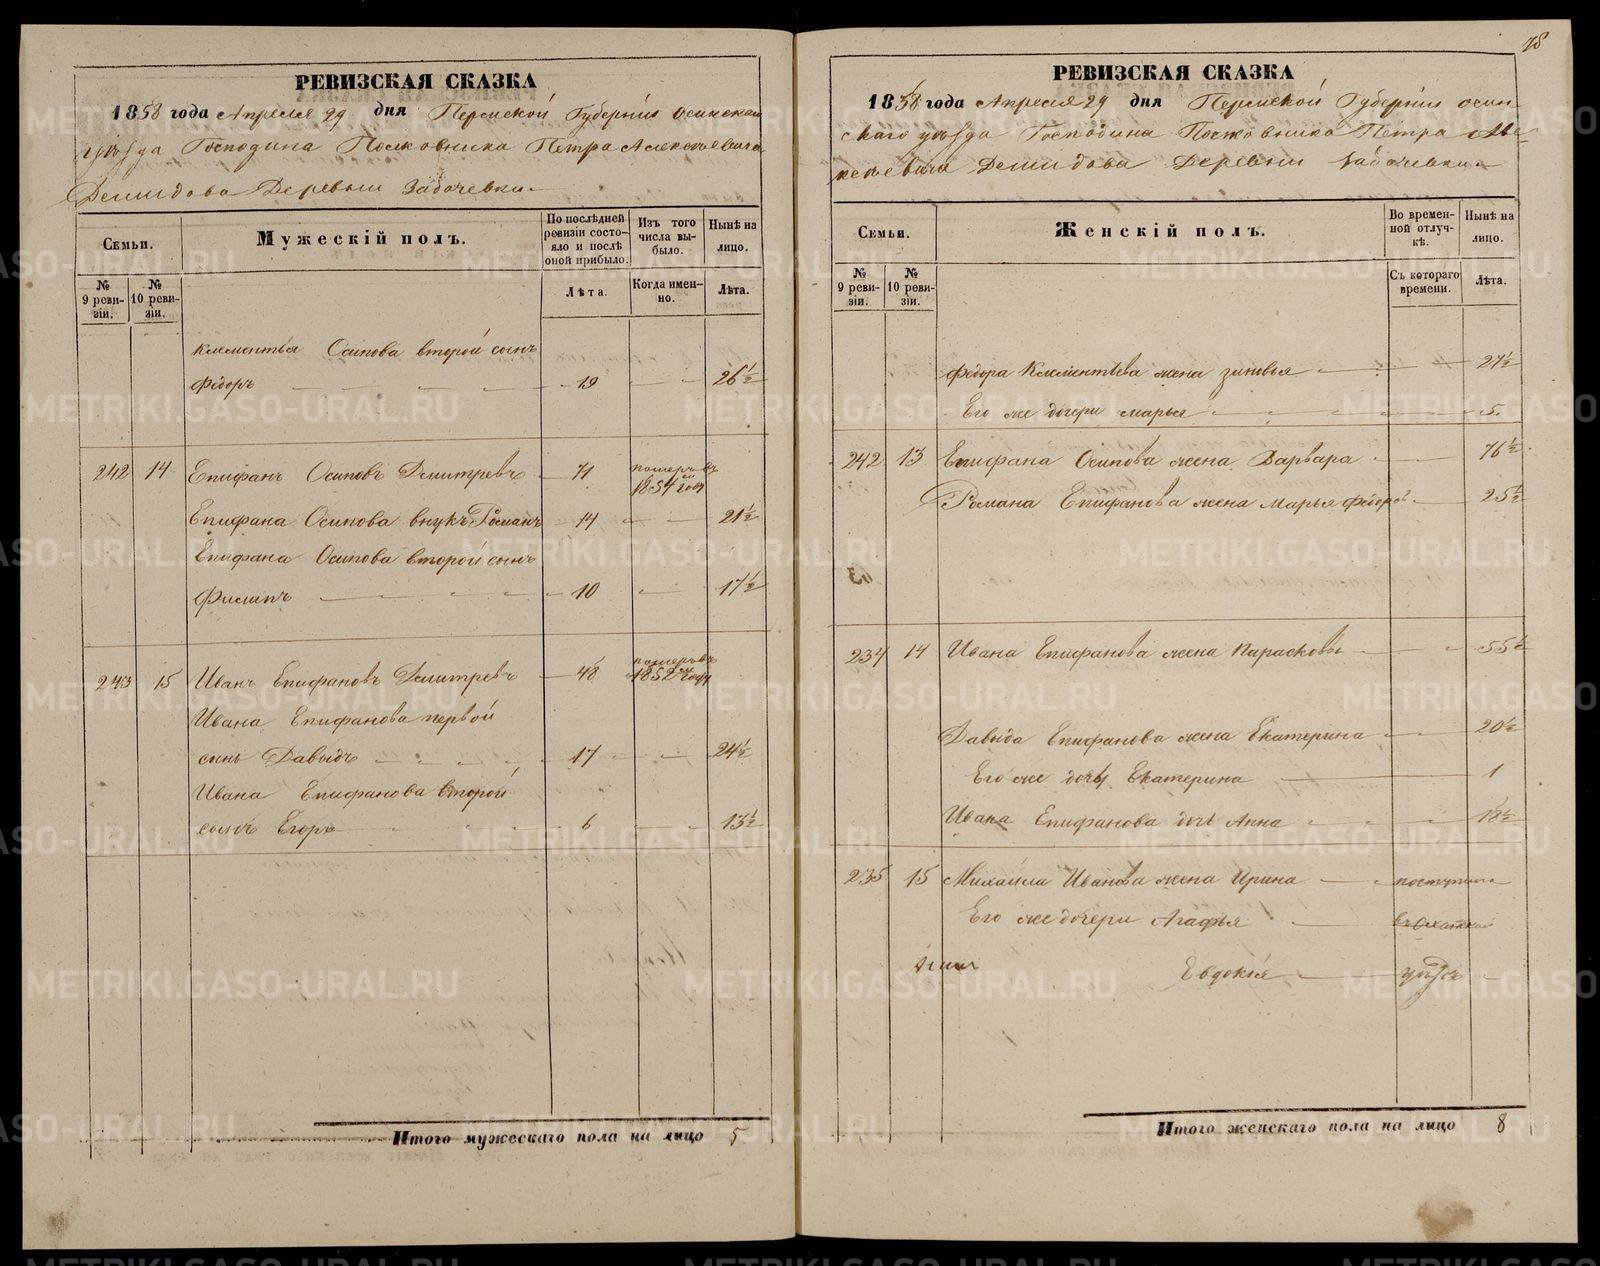 РЕВИЗСКАЯ СКАЗКА
1858 года Апреля 29 дня Пермской Губернiи Осинскаго
уѣзда Господина Полковника Петра Алексѣевича
Демидова Деревни Задочевки
Семьи.
Мужескій полъ.
По послѣдней ревизіи состояло и послѣ оной прибыло.
Изъ того числа выбыло.
Нынѣ на лицо.
№ 9 ревизіи.
№ 10 ревизіи.
Лѣта.
Когда именно.
Лѣта.
Клементья Осипова второй сынъ
Федоръ 19 26½
242 14 Епифанъ Осиповъ Дмитревъ 71 померъ въ 1854 году
Епифана Осипова внукъ Романъ 14 21½
Епифана Осипова второй сынъ
Филипъ 10 17½
243 15 Иванъ Епифановъ Дмитревъ 48 померъ въ 1852 году
Ивана Епифанова первой
сынъ Давыдъ 17 24½
Ивана Епифанова второй
сынъ Егоръ 6 13½
Итого мужескаго пола на лицо 5
78
РЕВИЗСКАЯ СКАЗКА
1858 года Апреля 29 дня Пермской Губернiи Осин
скаго уѣзда Господина Полковника Петра Але-
ксѣевича Демидова Деревни Задочевки
Семьи.
Женскій полъ.
Во временной отлучкѣ.
Нынѣ на лицо.
№ 9 ревизіи.
№ 10 ревизіи.
Съ котораго времени.
Лѣта.
Федора Клементьева жена Зиновья 27½
Его же дочери Марья 5
242 13 Епифана Осипова жена Варвара 76½
Романа Епифанова жена Марья Федоров 25½
234 14 Ивана Епифанова жена Парасковья 55½
Давыда Епифанова жена Екатерина 20½
Его же дочь Екатерина 1
Ивана Епифанова дочь Анна 18½
235 15 Михаила Иванова жена Ирина поступила
Его же дочери Агафья въ Оханской
Евдокія уѣздъ
Итого женскаго пола на лицо 8
METRIKI.GASO-URAL.RU